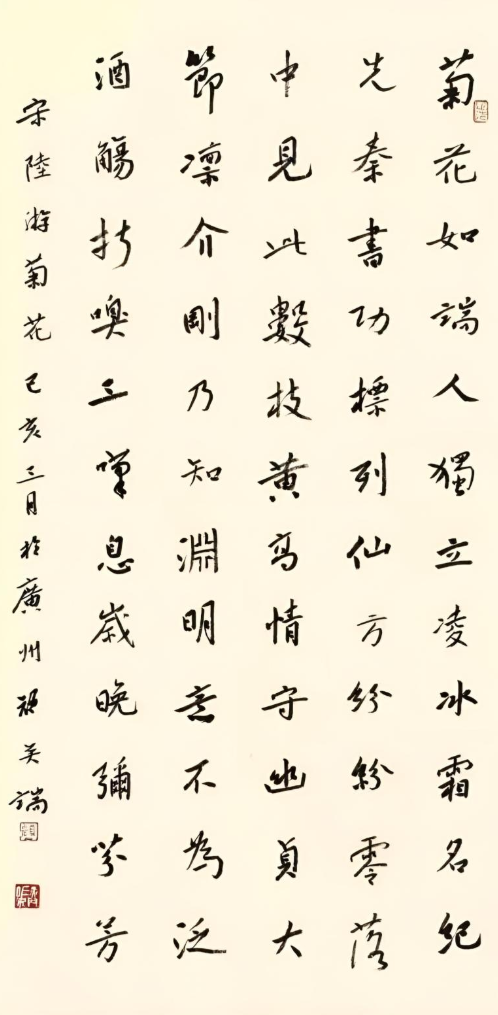 菊花如端人獨立凌冰霜名紀
先秦書功標列仙方紛紛零落
中見此數枝黄高情守幽貞大
節凛介剛乃知淵明意不為泛
酒觴折嗅三嘆息歲晚彌芬芳
宋陸游菊花己亥三月於廣州